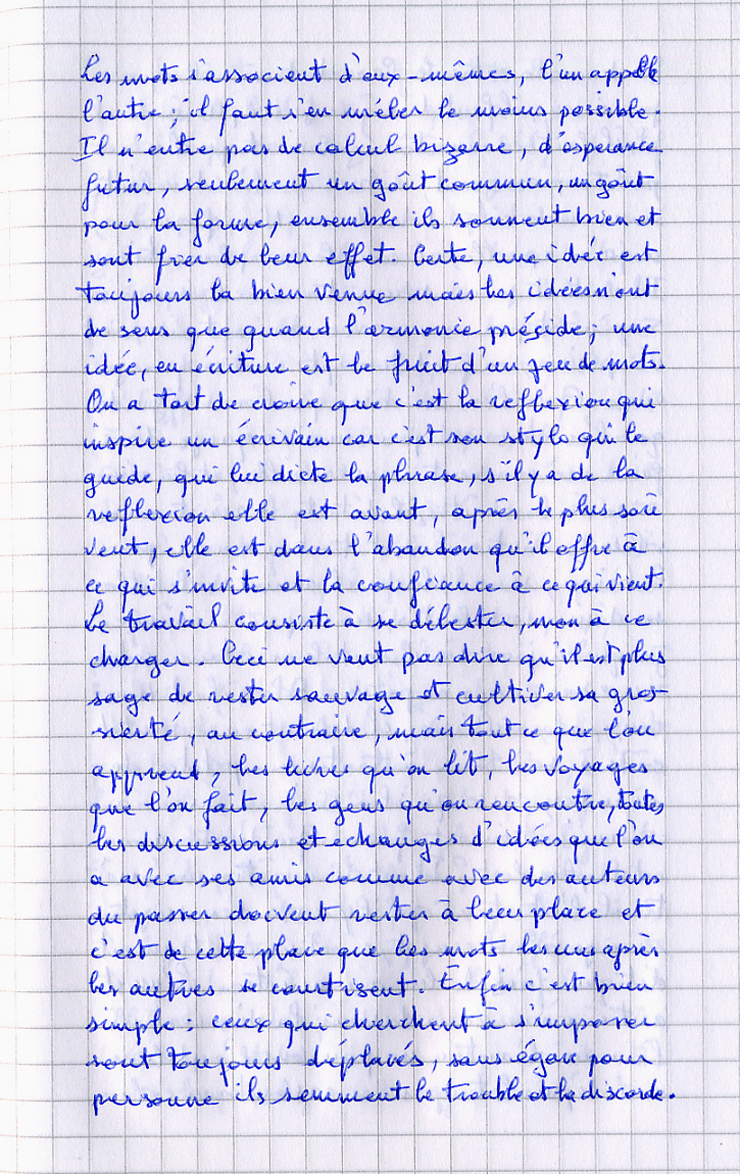 Les mots s'associent d'eux-mêmes, l'un appelle
l'autre ; il faut s'en mêler le moins possible.
Il n'entre pas de calcul bizarre, d'esperance
futur, seulement un goût commun, un goût
pour la forme, ensemble ils sonnent bien et
sont fier de leur effet. Certe, une idée est
toujours la bien venue mais les idées n'ont
de sens que quand l'armonie préside ; une
idée, en écriture est le fruit d'un jeu de mots.
On a tort de croire que c'est la reflexion qui
inspire un écrivain car c'est son stylo qui le
guide, qui lui dicte la phrase, s'il y a de la
reflexion elle est avant, après le plus sou
vent, elle est dans l'abandon qu'il offre à
ce qui s'invite et la confiance à ce qui vient.
Le travail consiste à se délester, non à ce
charger. Ceci ne veut pas dire qu'il est plus
sage de rester sauvage et cultiver sa gros
sierté, au contraire, mais tout ce que l'on
apprend, les livres qu'on lit, les voyages
que l'on fait, les gens qu'on rencontre, toutes
les discussions et echanges d'idées que l'on
a avec ses amis comme avec des auteurs
du passer doivent rester à leur place et
c'est de cette place que les mots les uns après
les autres se courtisent. Enfin c'est bien
simple : ceux qui cherchent à s'imposer
sont toujours déplacés, sans égare pour
personne ils semment le trouble et la discorde.